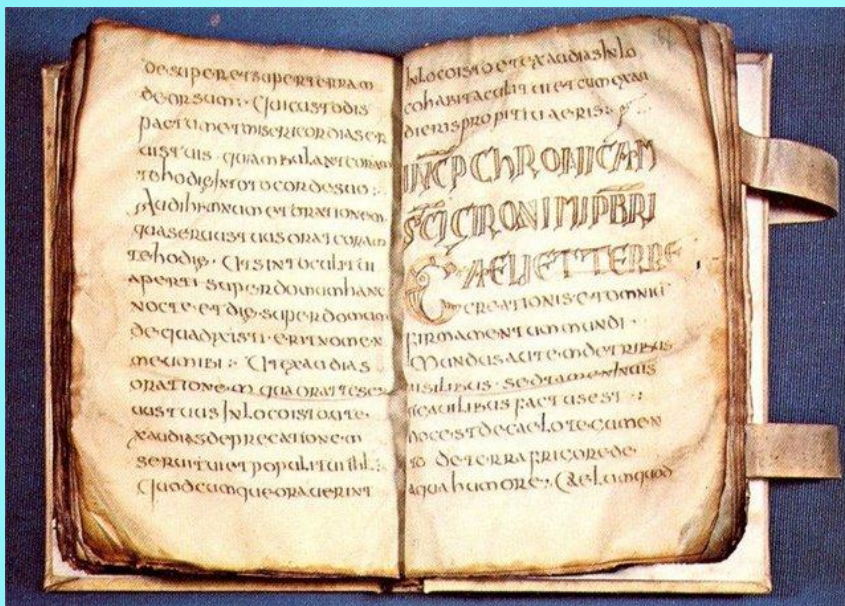 desuper et super terram
deorsum·· Qui custodis
pactum et misericordias er
uis tuis · quam bulant coram
te hodie In toto corde suo :·
Audi hymnum et orationem
qua seruus tuus orat coram
te hodie · Ut sint oculi tui
aperti super domum hanc
nocte et die super domum
de qua dixisti erit nomen
meum ibi :· Ut exaudias
orationem qua orat te ser
uus tuus In loco isto ut e
xaudias deprecationem
serui tui et populi tui ihl :·
Quodcumque orauerint
In loco isto et exaudias In lo
co habitaculi tui et cum exau
dieris propitiuaeris :·
INCP CHRONICAM
SCI GIRONIMI PBRI
CAELI ET TERRE
creationis et omniu
firmamentum mundi ·
Mundus autem de tribus
uisilibus · sed tamen Inuis
factus est :·
hoc est de caelo tegumen
to de terra frigore de
aqua humore :· Caelum quod